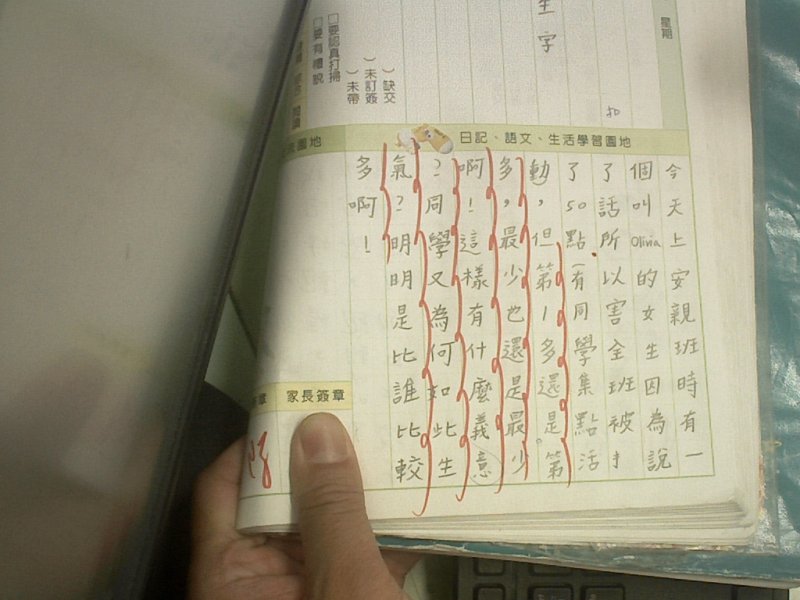 星期
生字
50
)缺交
)未訂簽
)未帶
□要認真打掃
□要有禮貌
日記、語文、生活學習園地
園地
今天上安親班時有一
個叫Olivia的女生因為說
了話所以害全班被扌
了50點(有同學集點活
動),但第1多還是第
多,最少也還是最少
啊!這樣有什麼義意
?同學又為何如此生
氣?明明是比誰比較
多啊!
家長簽章
章